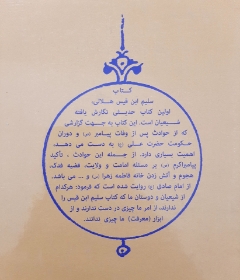 کتاب
سلیم ابن قیس هلالی:
اولین کتاب حدیثی نگارش یافته
شیعیان است. این کتاب به جهت گزارشی
که از حوادث پس از وفات پیامبر (ص) و دوران
حکومت حضرت علی (ع) به دست می دهد،
اهمیت بسیاری دارد. از جمله این حوادث، تأکید
پیامبراکرم (ص) بر مسئله امامت و ولایت، قضیه فدک،
هجوم و آتش زدن خانه فاطمه زهرا (س) و ... می باشد.
از امام صادق (ع) روایت شده است که فرمود: هرکدام
از شیعیان و دوستان ما که کتاب سلیم ابن قیس را
ندارند، از امر ما چیزی در دست ندارند و از
ابزار (معرفت) ما چیزی ندانند.